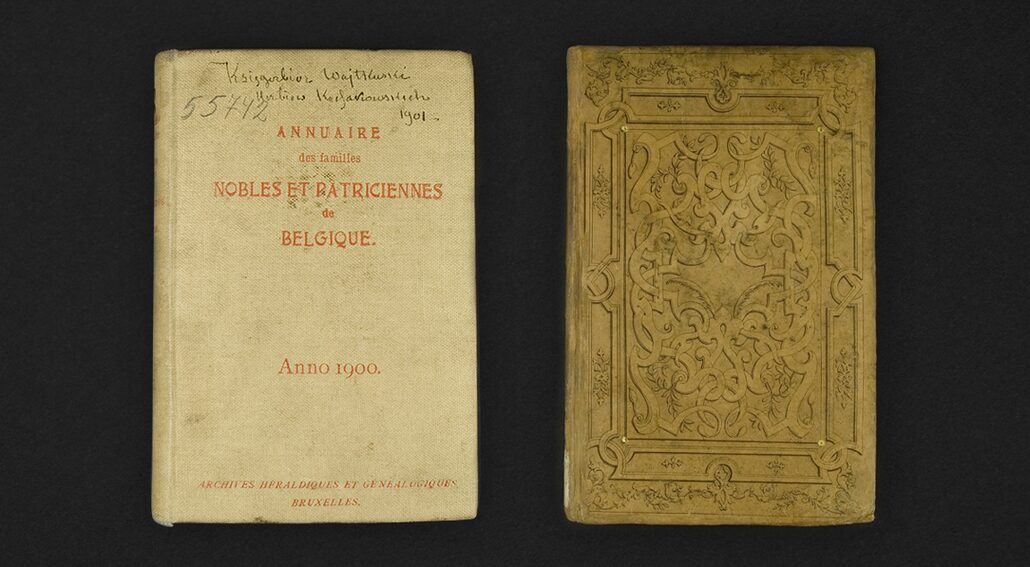 Księgozbior Wojtkuski
Hrabiów Kossakowskich
1901
55742
ANNUAIRE
des familles
NOBLES ET PATRICIENNES
de
BELGIQUE.
Anno 1900.
ARCHIVES HÉRALDIQUES ET GÉNÉALOGIQUES,
BRUXELLES.